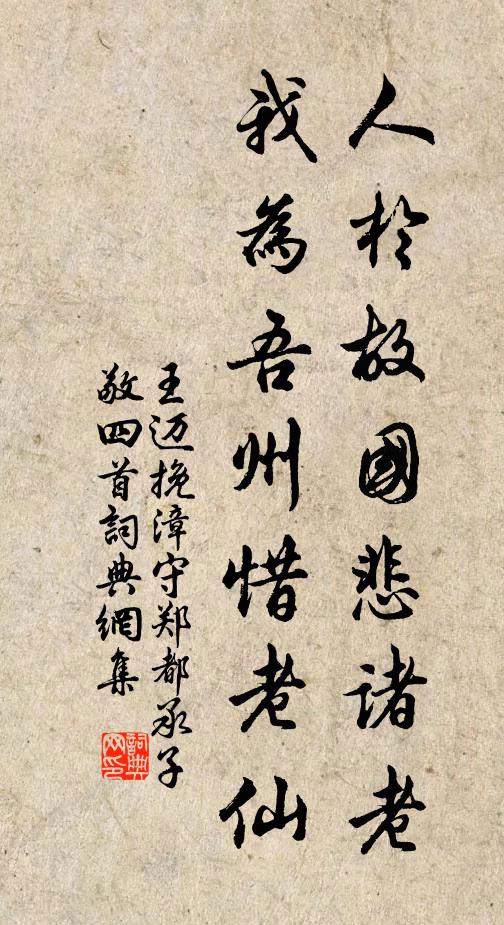 人於故國悲諸老
我為吾州惜老仙
王迈挽漳守郑都承子
敬四首詞典網集
詞典
网印